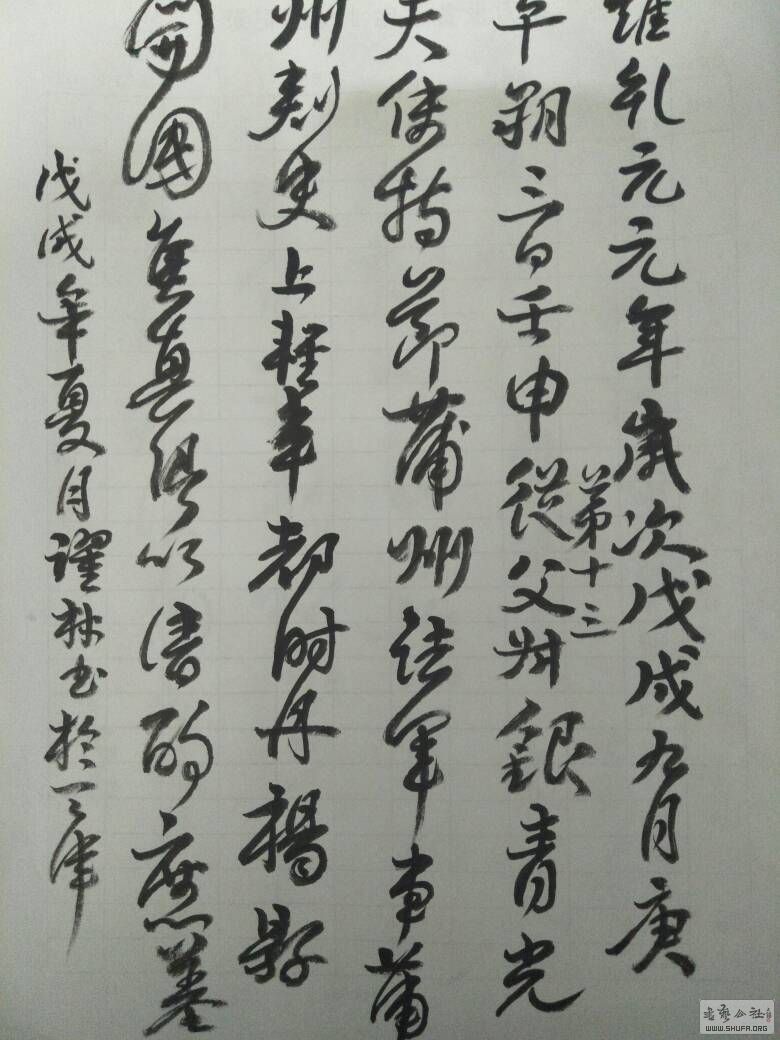 維乾元元年歲次戊戌九月庚
午朔三日壬申從父叔銀青光
第十三
夫使持節蒲州諸軍事蒲
州刺史上輕車都尉丹楊縣
開國矣真卿以清酌庶羞
戊戌年夏月譯林书於天津
書藝公社
WWW.SHUFA.ORG